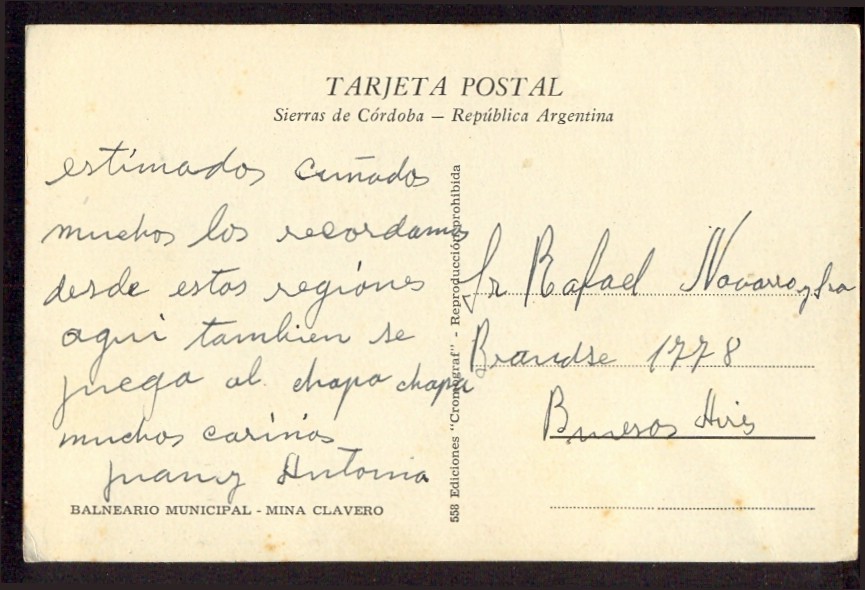 TARJETA POSTAL
Sierras de Córdoba — República Argentina
estimados cuñados
muchos los recordamos
desde estas regiones
aqui tambien se
juega al chapa chapa
muchos cariños
Juan y Antonia
BALNEARIO MUNICIPAL - MINA CLAVERO
558 Ediciones "Cromograf" - Reproducción prohibida
Sr Rafael Navarro y Sra
Brandse 1778
Buenos Aires